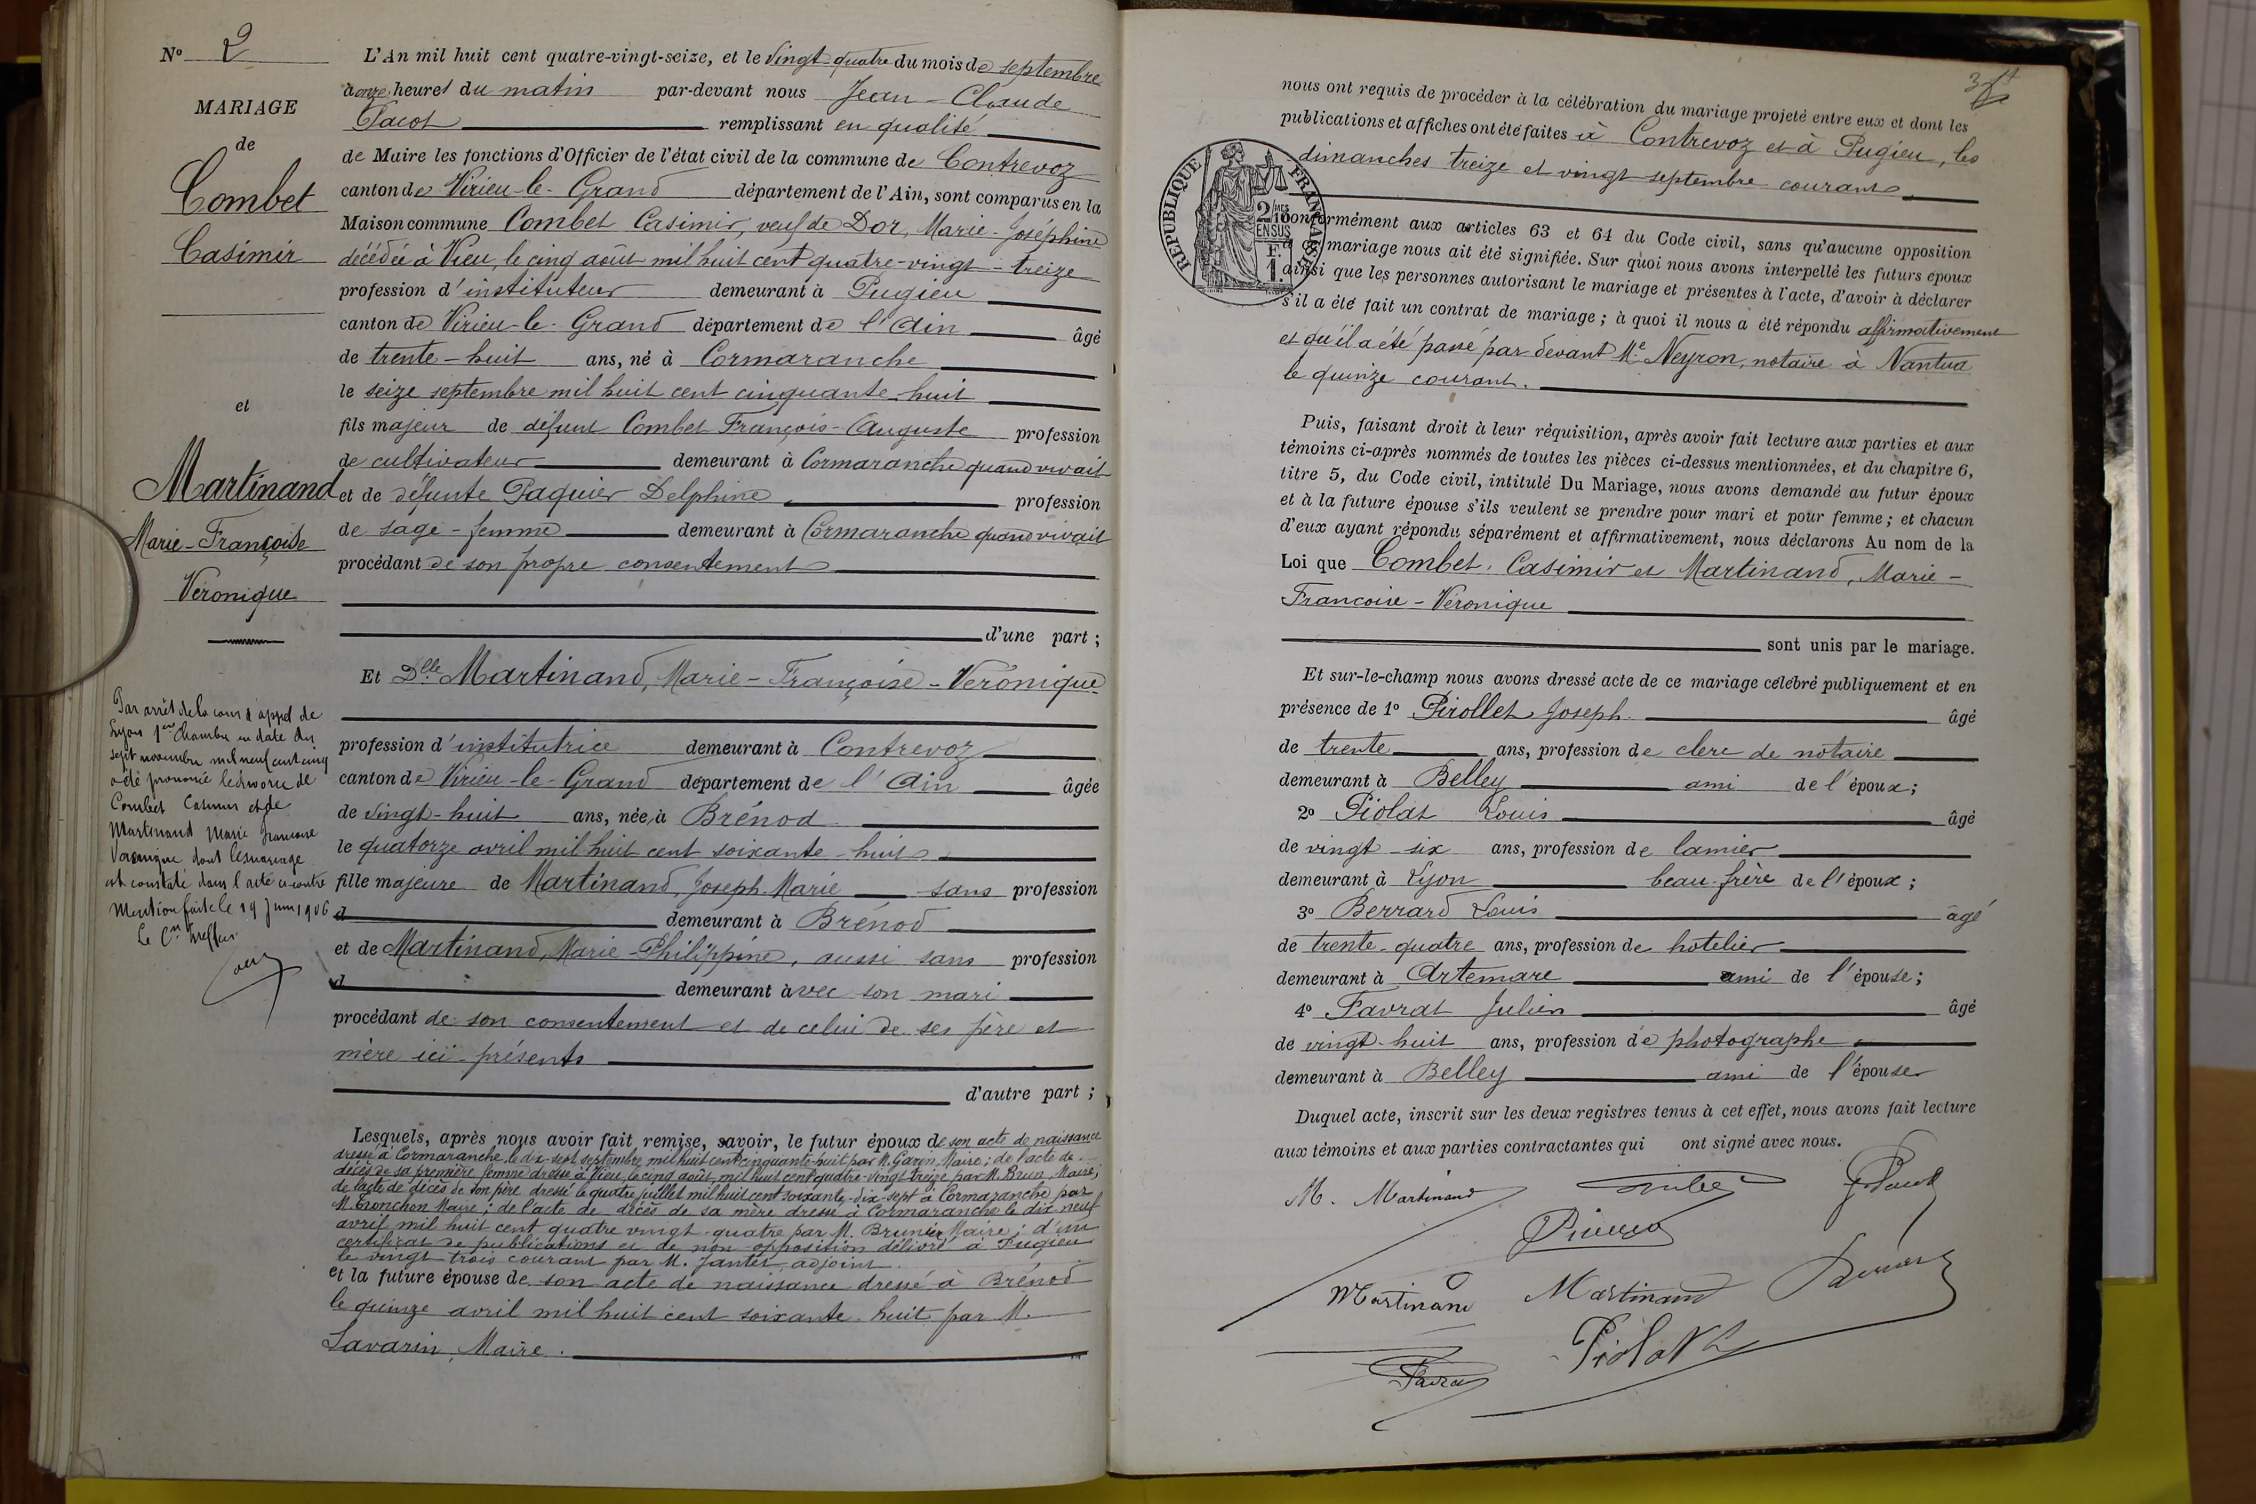 No 2
MARIAGE
de
Combet
Casimir
et
Martinand
Marie-Françoise
Véronique
Par arrêt de la cour d'appel de
Lyon 1ère Chambre en date du
sept novembre mil neuf cent cinq
a été prononcé le divorce de
Combet Casimir et de
Martinand Marie Francoise
Véronique dont le mariage
est constaté dans l'acte ci-contre
Mention faite le 19 Juin 1906
Le
L'An mil huit cent quatre-vingt-seize, et le vingt quatre du mois de septembre
à onze heures du matin par-devant nous Jean-Claude
Pacot remplissant en qualité
de Maire les fonctions d'Officier de l'état civil de la commune de Contrevoz
canton de Virieu-le-Grand département de l'Ain, sont comparus en la
Maison commune Combet Casimir, veuf de Dor, Marie-Joséphine
décédée à Vieu, le cinq août mil huit cent quatre-vingt-treize
profession d'instituteur demeurant à Pugieu
canton de Virieu-le-Grand département de l'Ain âgé
de trente-huit ans, né à Cormaranche
le seize septembre mil huit cent cinquante-huit
fils majeur de défunt Combet François-Auguste profession
de cultivateur demeurant à Cormaranche quand vivait
et de défunte Paquier Delphine profession
de sage-femme demeurant à Cormaranche quand vivait
procédant de son propre consentement
d'une part ;
Et Dlle Martinand, Marie-Françoise-Véronique
profession d'institutrice demeurant à Contrevoz
canton de Virieu-le-Grand département de l'Ain âgée
de vingt-huit ans, née à Brénod
le quatorze avril mil huit cent soixante-huit
fille majeure de Martinand, Joseph-Marie sans profession
d demeurant à Brénod
et de Martinand, Marie-Philippine, aussi sans profession
d demeurant avec son mari
procédant de son consentement et de celui de ses père et
mère ici présents
d'autre part ;
Lesquels, après nous avoir fait remise, savoir, le futur époux de son acte de naissance
dressé à Cormaranche, le dix-sept septembre mil huit cent cinquante-huit par M. Garin, Maire ; de l'acte de
décès de sa première femme dressé à Vieu, le cinq août mil huit cent quatre-vingt treize par M. Brun, Maire ;
de l'acte de décès de son père dressé le quatre juillet mil huit cent soixante-dix-sept à Cormaranche par
M. Tronchon Maire ; de l'acte de décès de sa mère dressé à Cormaranche le dix neuf
avril mil huit cent quatre vingt-quatre par M. Brunier Maire ; d'un
certificat de publications et de non opposition délivré à Pugieu
le vingt trois courant par M. Jantet, adjoint.
et la future épouse de son acte de naissance dressé à Brénod
le quinze avril mil huit cent soixante-huit par M.
Savarin, Maire.
nous ont requis de procéder à la célébration du mariage projeté entre eux et dont les
publications et affiches ont été faites à Contrevoz et à Pugieu, les
dimanches treize et vingt septembre courant
RÉPUBLIQUE FRANÇAISE
2/10 MES
EN SUS
F.
1.
Conformément aux articles 63 et 64 du Code civil, sans qu'aucune opposition
à ce mariage nous ait été signifiée. Sur quoi nous avons interpellé les futurs époux
ainsi que les personnes autorisant le mariage et présentes à l'acte, d'avoir à déclarer
s'il a été fait un contrat de mariage ; à quoi il nous a été répondu affirmativement
et qu'il a été passé par devant Me Neyron, notaire à Nantua
le quinze courant.
Puis, faisant droit à leur réquisition, après avoir fait lecture aux parties et aux
témoins ci-après nommés de toutes les pièces ci-dessus mentionnées, et du chapitre 6,
titre 5, du Code civil, intitulé Du Mariage, nous avons demandé au futur époux
et à la future épouse s'ils veulent se prendre pour mari et pour femme ; et chacun
d'eux ayant répondu séparément et affirmativement, nous déclarons Au nom de la
Loi que Combet, Casimir et Martinand, Marie-
Francoise-Veronique
sont unis par le mariage.
Et sur-le-champ nous avons dressé acte de ce mariage célébré publiquement et en
présence de 1o Pirollet Joseph. âgé
de trente ans, profession de clerc de notaire
demeurant à Belley ami de l'époux ;
2o Piolat Louis âgé
de vingt-six ans, profession de lamier
demeurant à Lyon beau-frère de l'époux ;
3o Berrard Louis âgé
de trente-quatre ans, profession de hotelier
demeurant à Artemare ami de l'épouse ;
4o Favrat Julien âgé
de vingt-huit ans, profession de photographe
demeurant à Belley ami de l'épouse
Duquel acte, inscrit sur les deux registres tenus à cet effet, nous avons fait lecture
aux témoins et aux parties contractantes qui ont signé avec nous.
M. Martinand
Martinand Martinand
Piolat
Favrat